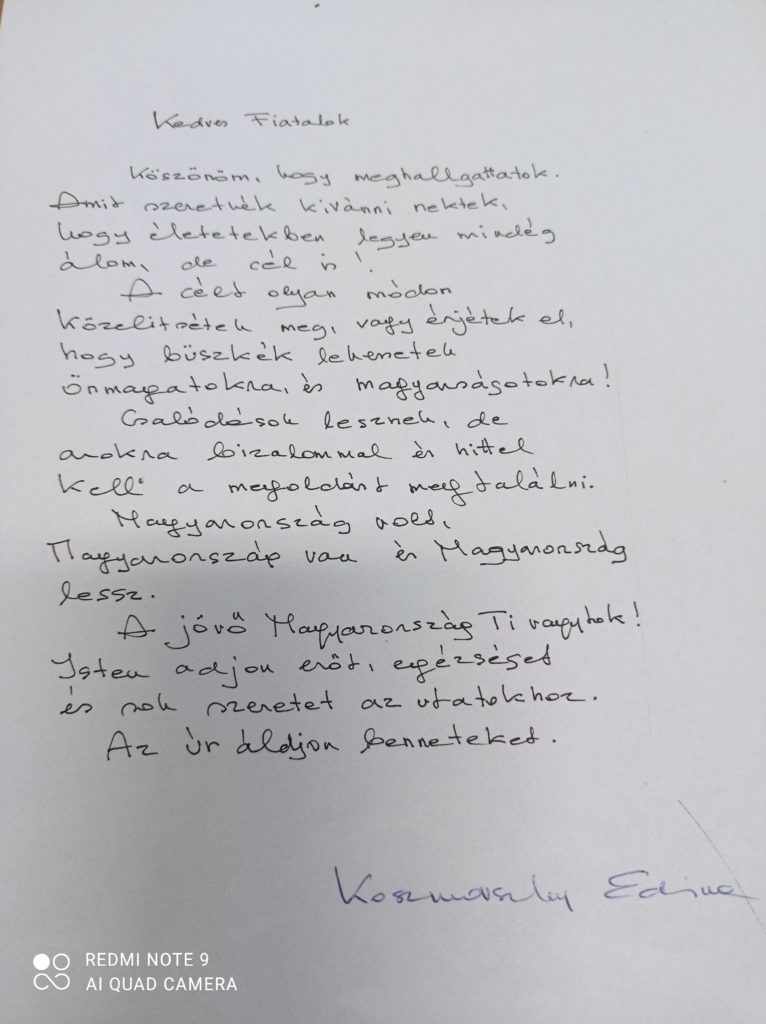 Kedves Fiatalok
Köszönöm, hogy meghallgattatok.
Amit szeretnék kivánni nektek,
hogy életetekben legyen mindég
álom, de cél is!
A célt olyan módon
közelitsétek meg, vagy érjétek el,
hogy büszkék lehessetek
önmagatokra, és magyarságotokra!
Csalódások lesznek, de
azokra bizalommal és hittel
kell a megoldást megtalálni.
Magyarország volt,
Magyarország van és Magyarország
lessz.
A jövő Magyarország Ti vagytok!
Isten adjon erőt, egézséget
és sok szeretet az utatokhoz.
Az Úr áldjon benneteket.
Koszmovszky Edina
REDMI NOTE 9
AI QUAD CAMERA